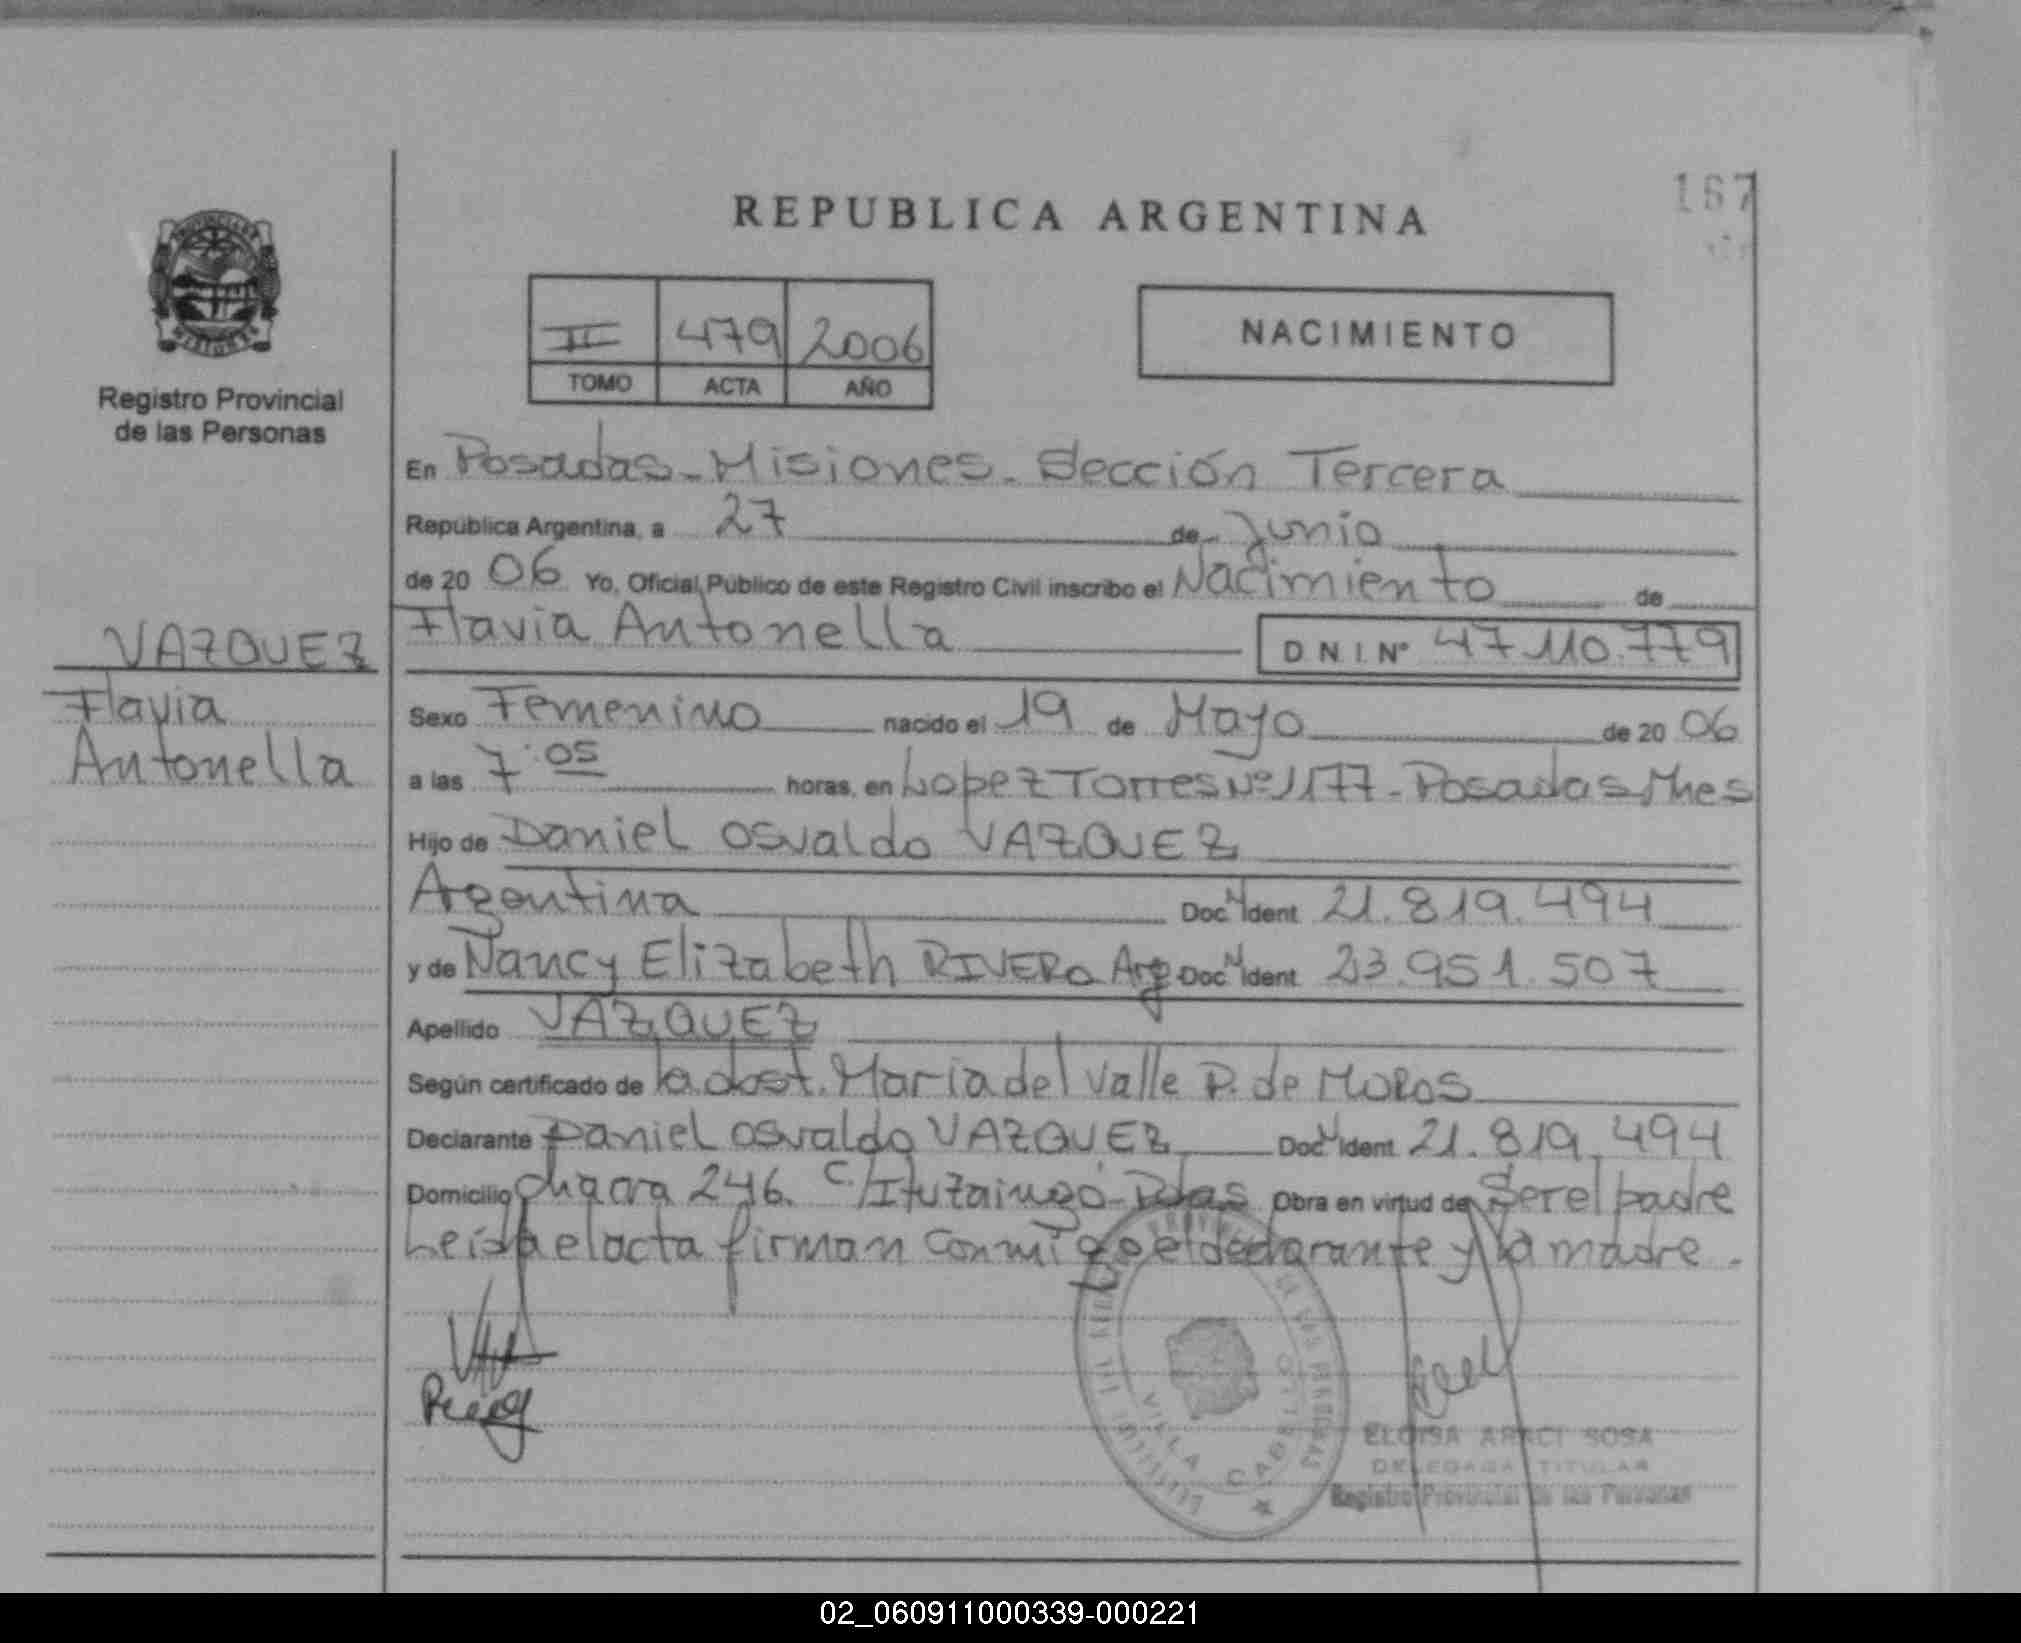 167
REPUBLICA ARGENTINA
II 479 2006
TOMO ACTA AÑO
NACIMIENTO
Registro Provincial
de las Personas
VAZQUEZ
Flavia
Antonella
En Posadas - Misiones - Sección Tercera
República Argentina, a 27 de Junio
de 20 06 Yo, Oficial Público de este Registro Civil inscribo el Nacimiento de
Flavia Antonella D.N.I. Nº 47.110.779
Sexo Femenino nacido el 19 de Mayo de 20 06
a las 7:05 horas, en Lopez Torres Nº 1177 - Posadas Mnes
Hijo de Daniel Osvaldo VAZQUEZ
Argentina Doc. Ident 21.819.494
y de Nancy Elizabeth RIVERO Arg Doc. Ident 23.951.507
Apellido VAZQUEZ
Según certificado de la obst. Maria del Valle P. de MOROS
Declarante Daniel Osvaldo VAZQUEZ Doc. Ident 21.819.494
Domicilio Chacra 246. C/Ituzaingó - Pdas Obra en virtud de Ser el padre
Leída el acta firman conmigo el declarante y la madre.
VILLA CABELLO
ELOISA ARACI SOSA
DELEGADA TITULAR
Registro Provincial de las Personas
02_060911000339-000221